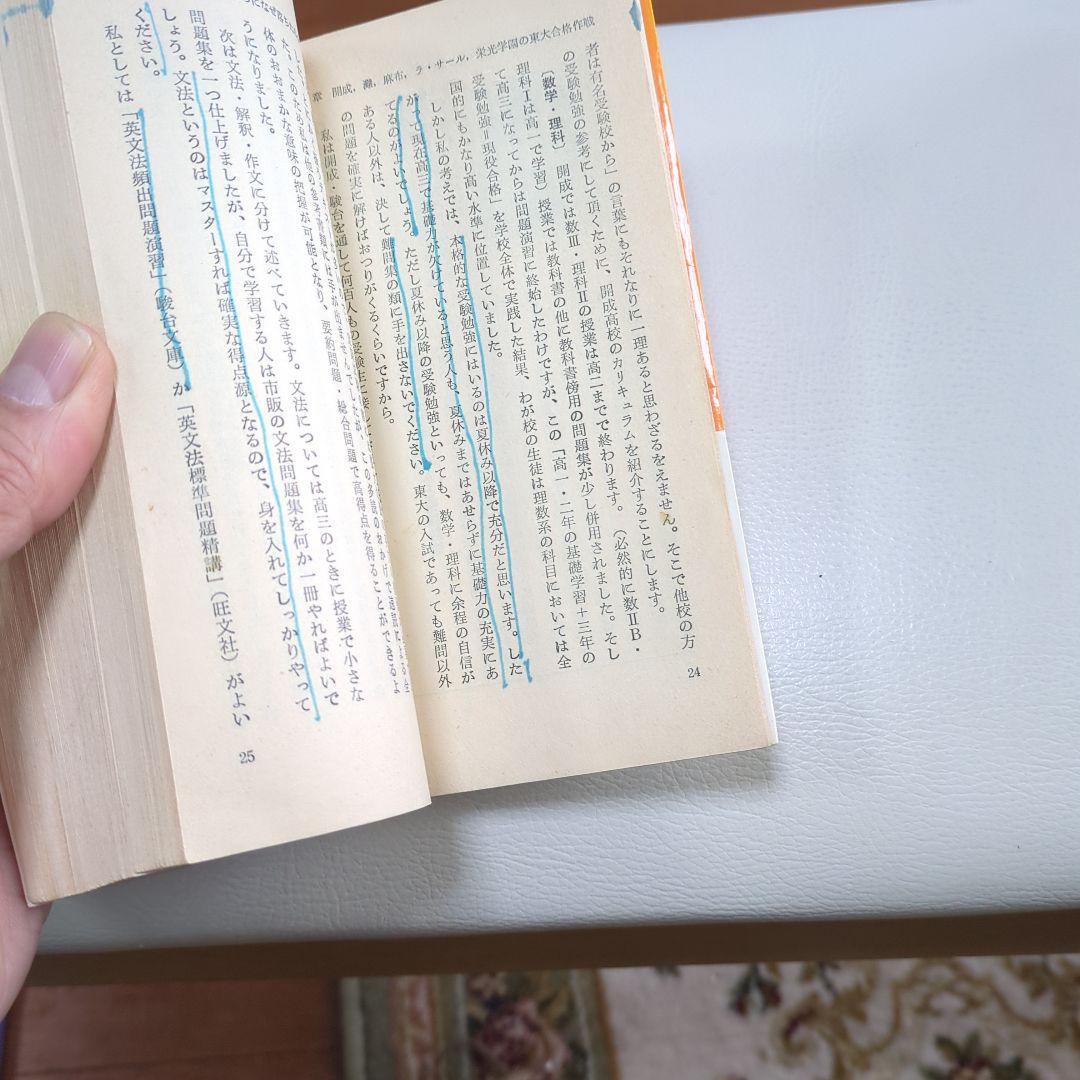 章 開成，灘，麻布，ラ・サール，栄光学園の東大合格作戦
者は有名受験校から」の言葉にもそれなりに一理あると思わざるをえません。そこで他校の方
の受験勉強の参考にして頂くために、開成高校のカリキュラムを紹介することにします。
〔数学・理科〕 開成では数Ⅲ・理科Ⅱの授業は高二までで終わります。（必然的に数ⅡB・
理科Ⅰは高一で学習）授業では教科書の他に教科書傍用の問題集が少し併用されました。そし
て高三になってからは問題演習に終始したわけですが、この「高一・二年の基礎学習＋三年の
受験勉強＝現役合格」を学校全体で実践した結果、わが校の生徒は理数系の科目においては全
国的にもかなり高い水準に位置していました。
しかし私の考えでは、本格的な受験勉強にはいるのは夏休み以降で充分だと思います。した
がって現在高三で基礎力が欠けていると思う人も、夏休みまではあせらずに基礎力の充実にあ
てるのがよいでしょう。ただし夏休み以降の受験勉強といっても、数学・理科に余程の自信が
ある人以外は、決して難問集の類に手を出さないでください。東大の入試であっても難問以外
の問題を確実に解けばおつりがくるくらいですから。
私は開成・駿台を通して何百人もの受験生に接して
24
体のおおまかな意味の把握が可能となり、要約問題・総合問題で高得点を得ることができるよ
うになりました。
次は文法・解釈・作文に分けて述べていきます。文法については高三のときに授業で小さな
問題集を一つ仕上げましたが、自分で学習する人は市販の文法問題集を何か一冊やればよいで
しょう。文法というのはマスターすれば確実な得点源となるので、身を入れてしっかりやって
ください。
私としては「英文法頻出問題演習」（駿台文庫）か「英文法標準問題精講」（旺文社）がよい
25